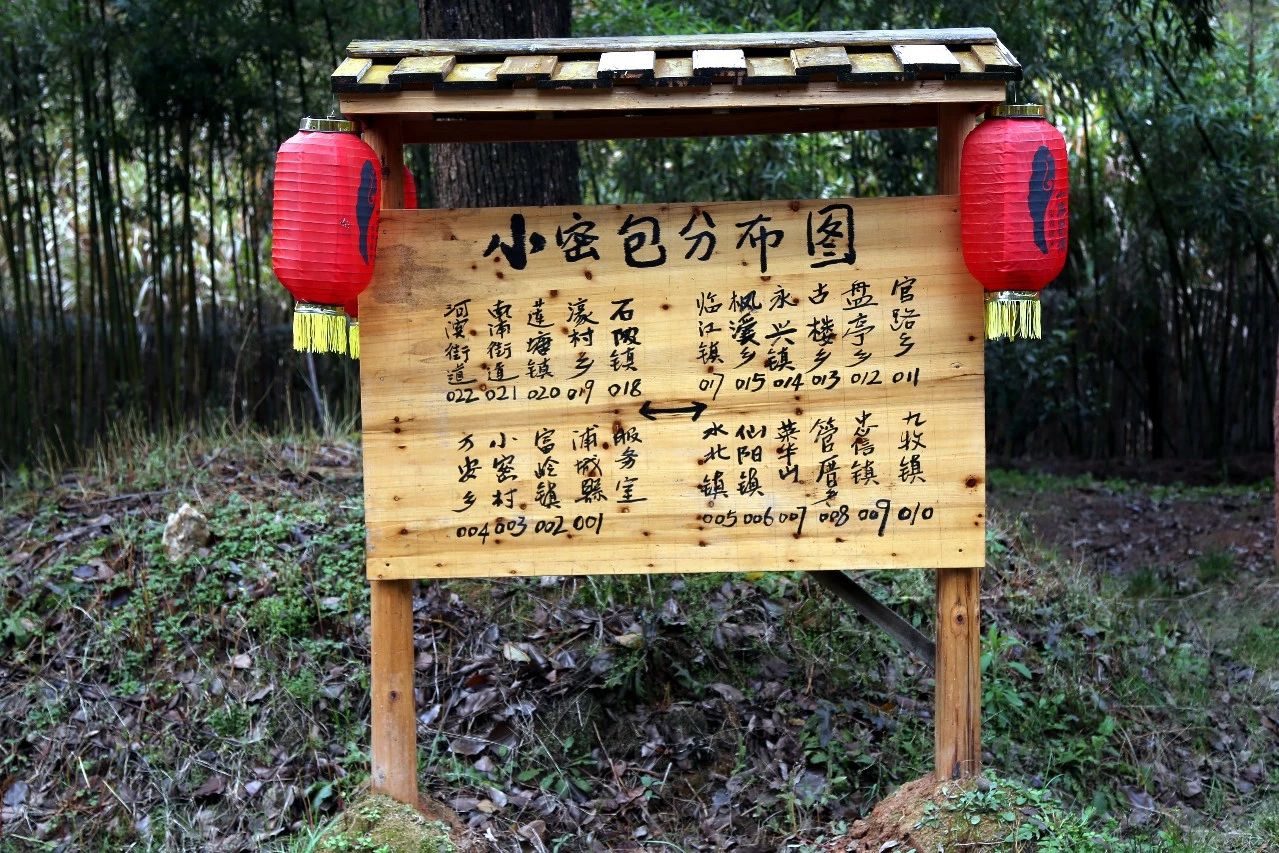 小密包分布图
河滨街道
022
南浦街道
021
莲塘镇
020
濠村乡
019
石陂镇
018
临江镇
017
枫溪乡
015
永兴镇
014
古楼乡
013
盘亭乡
012
官路乡
011
万安乡
004
小密村
003
富岭镇
002
浦城縣
001
服务室
水北镇
005
仙阳镇
006
007
管厝乡
008
忠信镇
009
九牧镇
010